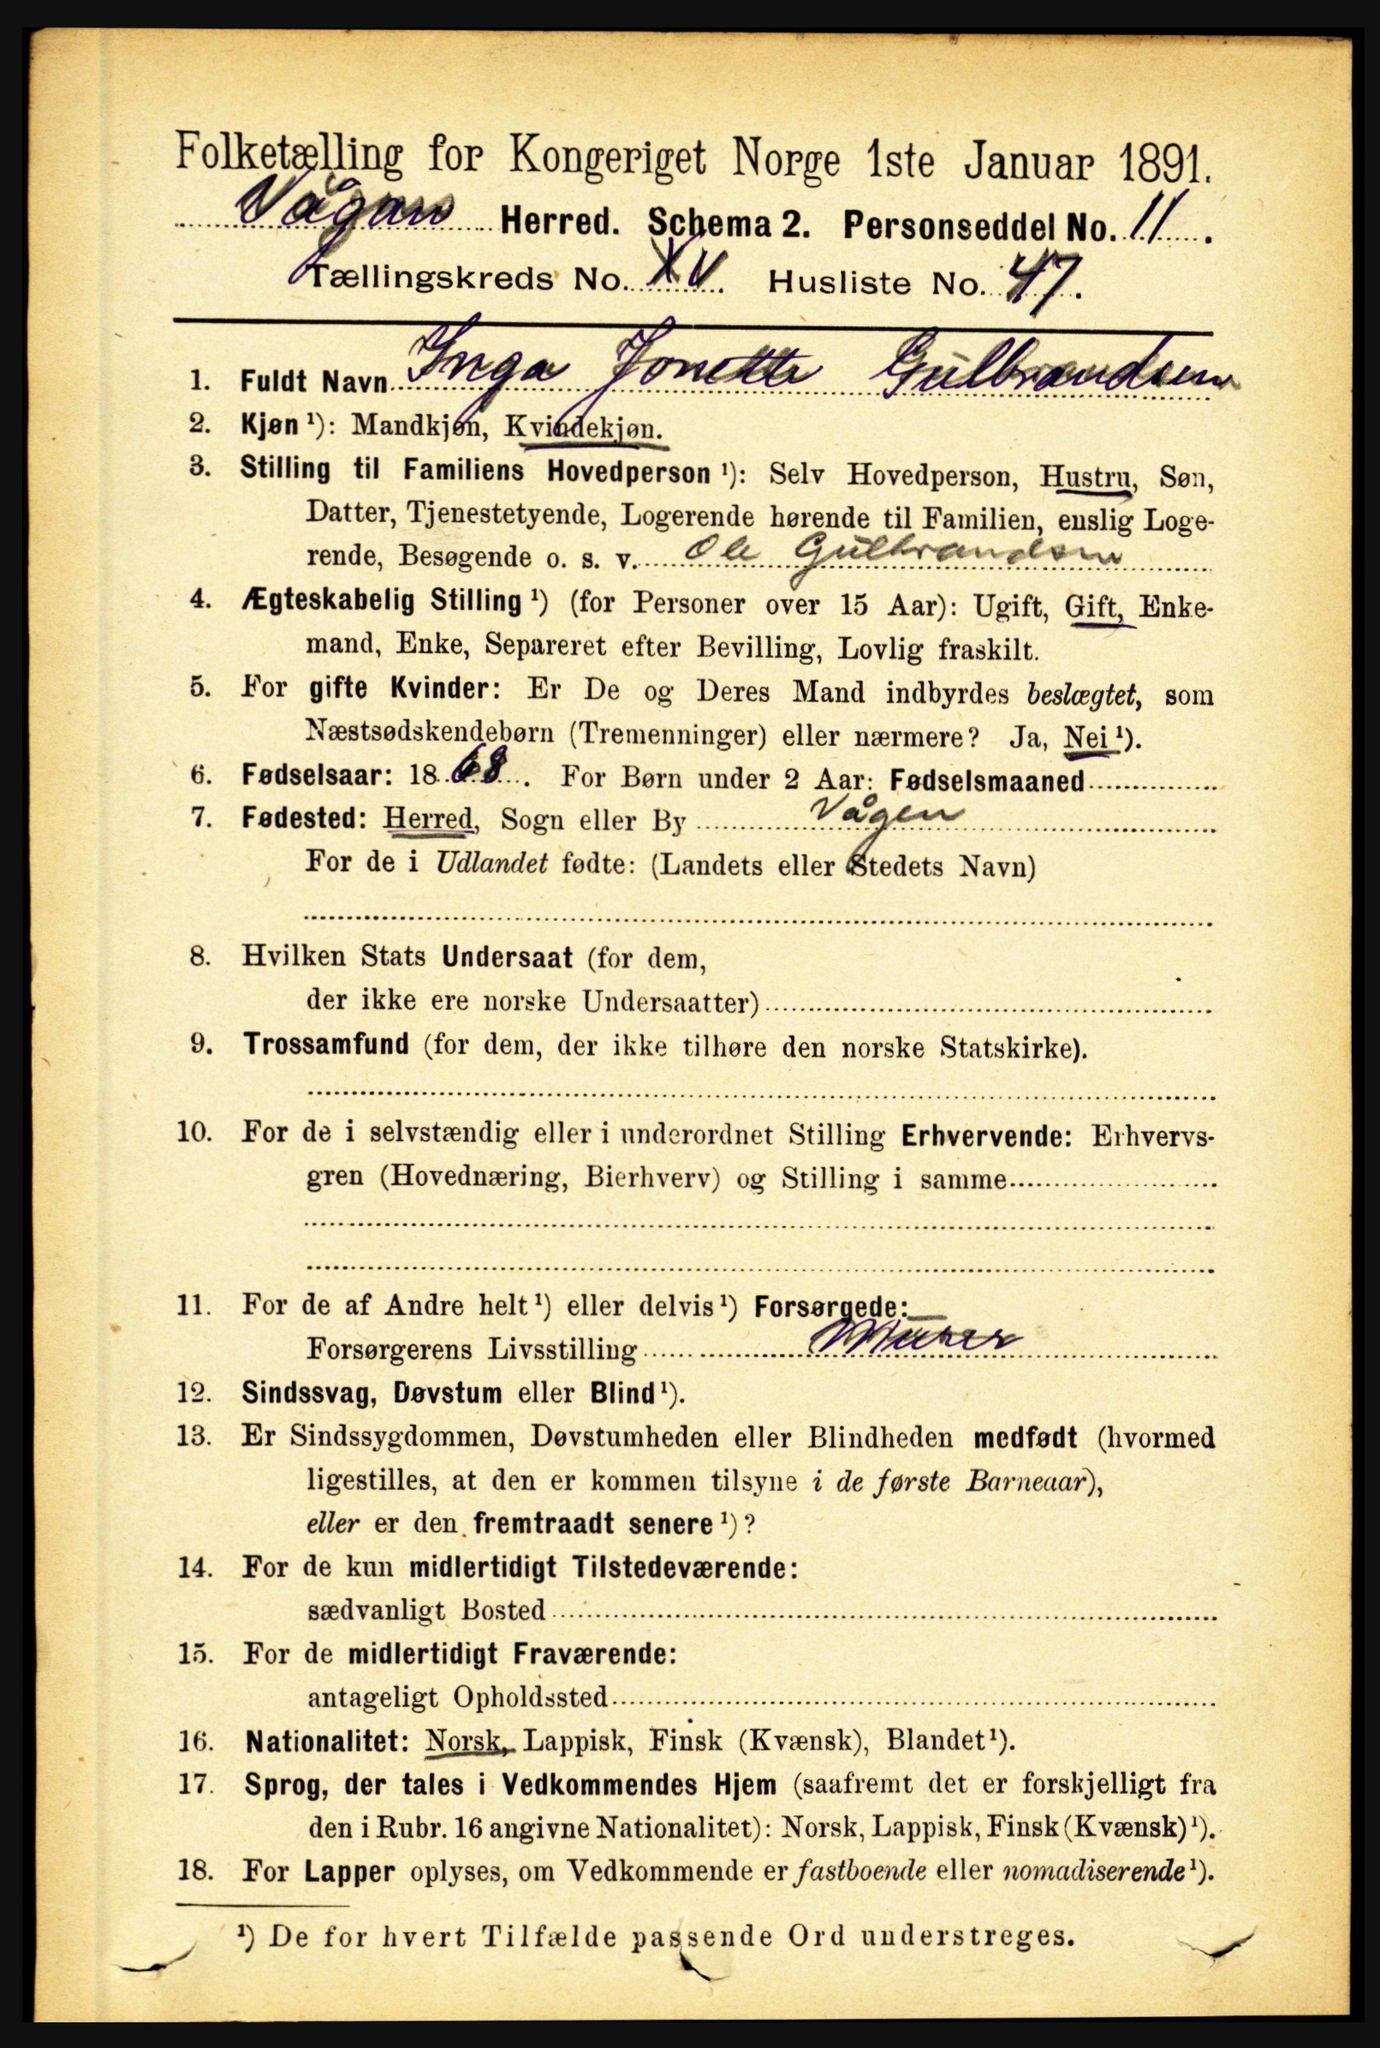 Folketælling for Kongeriget Norge 1ste Januar 1891.
Vågan Herred. Schema 2. Personseddel No. 11.
Tællingskreds No. XV Husliste No. 47.
1. Fuldt Navn Inga Jonette Gulbrandsen
2. Kjøn ¹): Mandkjøn, Kvindekjøn.
3. Stilling til Familiens Hovedperson ¹): Selv Hovedperson, Hustru, Søn,
Datter, Tjenestetyende, Logerende hørende til Familien, enslig Loge-
rende, Besøgende o. s. v. Ole Gulbrandsen
4. Ægteskabelig Stilling ¹) (for Personer over 15 Aar): Ugift, Gift, Enke-
mand, Enke, Separeret efter Bevilling, Lovlig fraskilt.
5. For gifte Kvinder: Er De og Deres Mand indbyrdes beslægtet, som
Næstsødskendebørn (Tremenninger) eller nærmere? Ja, Nei ¹).
6. Fødselsaar: 1868. For Børn under 2 Aar: Fødselsmaaned
7. Fødested: Herred, Sogn eller By Vågen
For de i Udlandet fødte: (Landets eller Stedets Navn)
8. Hvilken Stats Undersaat (for dem,
der ikke ere norske Undersaatter)
9. Trossamfund (for dem, der ikke tilhøre den norske Statskirke).
10. For de i selvstændig eller i underordnet Stilling Erhvervende: Erhvervs-
gren (Hovednæring, Bierhverv) og Stilling i samme
11. For de af Andre helt ¹) eller delvis ¹) Forsørgede:
Forsørgerens Livsstilling Murer
12. Sindssvag, Døvstum eller Blind ¹).
13. Er Sindssygdommen, Døvstumheden eller Blindheden medfødt (hvormed
ligestilles, at den er kommen tilsyne i de første Barneaar),
eller er den fremtraadt senere ¹)?
14. For de kun midlertidigt Tilstedeværende:
sædvanligt Bosted
15. For de midlertidigt Fraværende:
antageligt Opholdssted
16. Nationalitet: Norsk, Lappisk, Finsk (Kvænsk), Blandet ¹).
17. Sprog, der tales i Vedkommendes Hjem (saafremt det er forskjelligt fra
den i Rubr. 16 angivne Nationalitet): Norsk, Lappisk, Finsk (Kvænsk) ¹).
18. For Lapper oplyses, om Vedkommende er fastboende eller nomadiserende ¹).
¹) De for hvert Tilfælde passende Ord understreges.